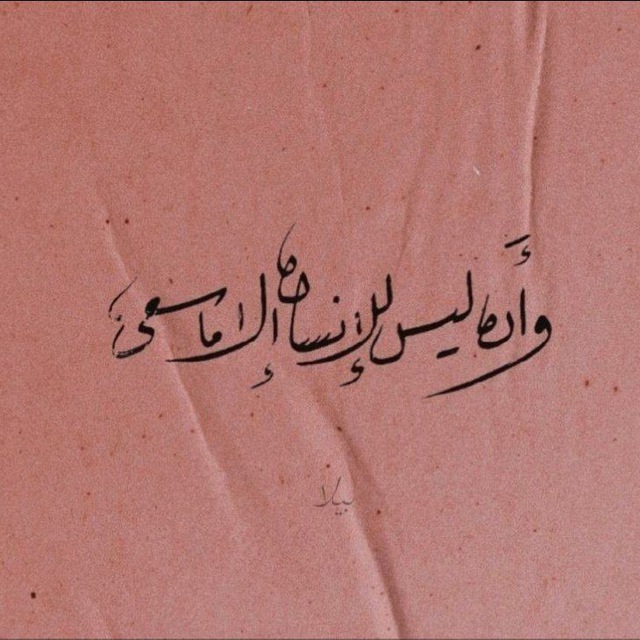 وأن ليس للإنسان إلا ما سعى
ليلا